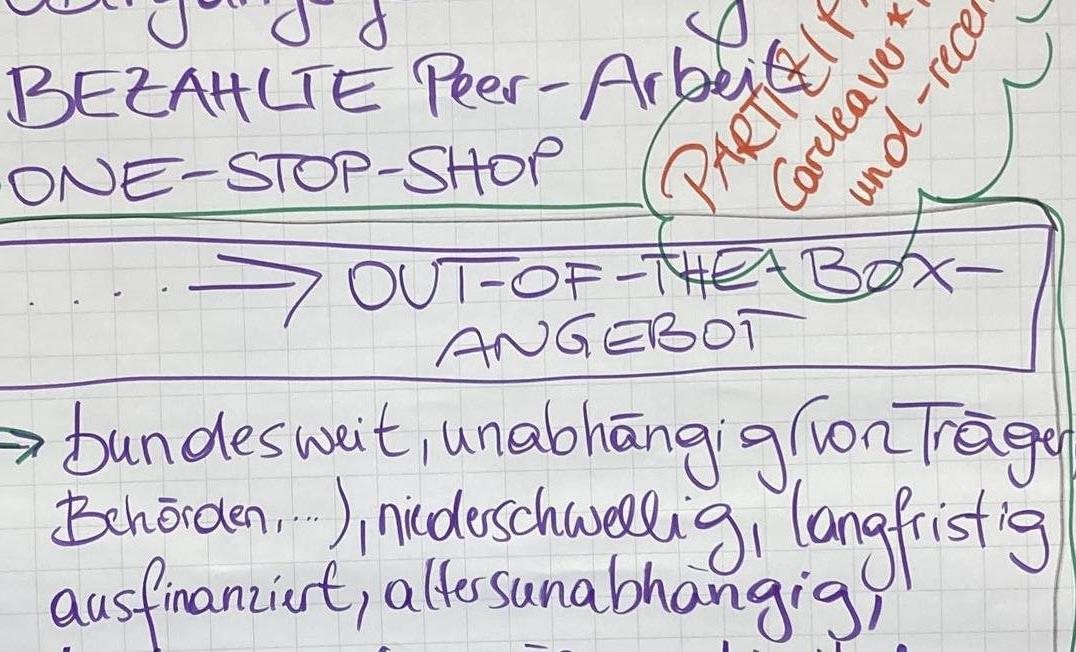 BEZAHLTE Peer-Arbeit
ONE-STOP-SHOP
PARTIZIP
Careleaver*
und -recen
.... → OUT-OF-THE-BOX-
ANGEBOT
→ bundesweit, unabhängig (von Träger
Behörden, ...), niederschwellig, langfristig
ausfinanziert, altersunabhängig,